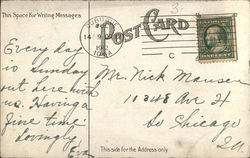 This Space For Writing Messages
POST CARD
DUBUQUE
14 9
1912
IOWA
C
3
Every day
is Sunday
out here with
us. Having a
fine time
Lovingly
Eva
Mr. Nick Mauser
10348 Ave H
So Chicago
This side for the Address only